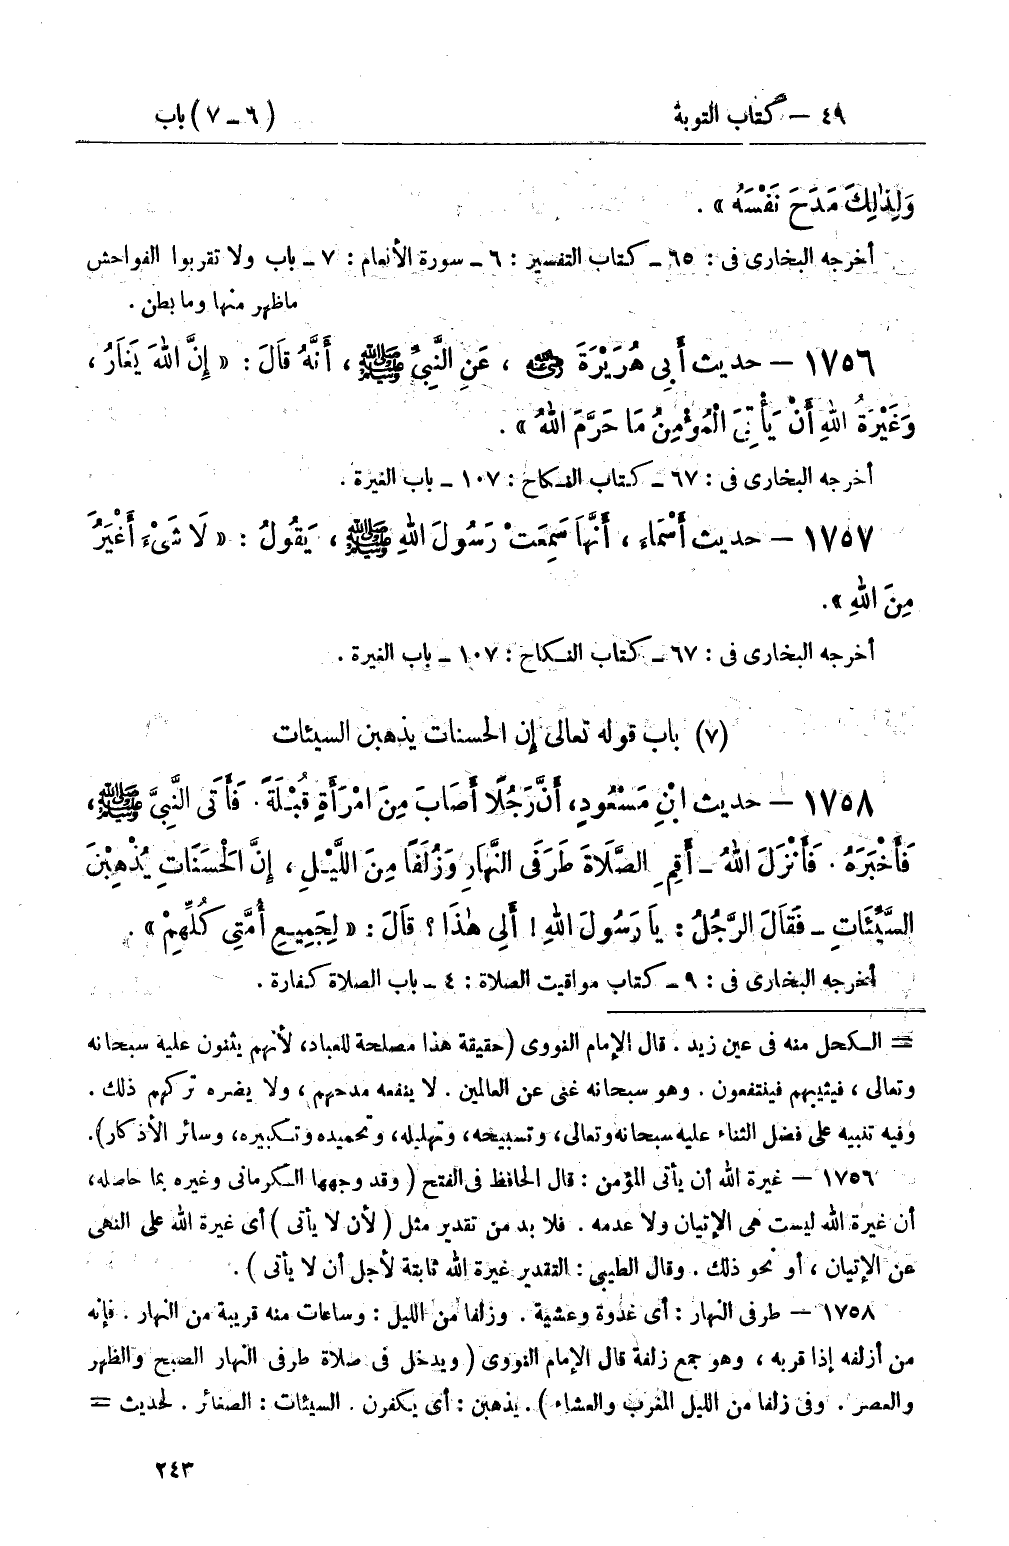 ٤٩ — كتاب التوبة
(٦ ــ ٧) باب
وَلِذٰلِكَ مَدَحَ نَفْسَهُ » .
أخرجه البخارى فى : ٦٥ ــ كتاب التفسير : ٦ ــ سورة الأنعام : ٧ ــ باب ولا تقربوا الفواحش
ماظهر منها وما بطن .
١٧٥٦ — حديث أَبِى هُرَيْرَةَ رضي الله عنه ، عَنِ النَّبِيِّ ﷺ ، أَنَّهُ قَالَ : « إِنَّ اللهَ يَغَارُ ،
وَغَيْرَةُ اللهِ أَنْ يَأْتِىَ الْمُؤْمِنُ مَا حَرَّمَ اللهُ » .
أخرجه البخارى فى : ٦٧ ــ كتاب النكاح : ١٠٧ ــ باب الغيرة .
١٧٥٧ — حديث أَسْمَاءَ ، أَنَّهَا سَمِعَتْ رَسُولَ اللهِ ﷺ ، يَقُولُ : « لَا شَىْءَ أَغْيَرُ
مِنَ اللهِ ».
أخرجه البخارى فى : ٦٧ ــ كتاب النكاح : ١٠٧ ــ باب الغيرة .
(٧) باب قوله تعالى إن الحسنات يذهبن السيئات
١٧٥٨ — حديث ابْنِ مَسْعُودٍ، أَنَّ رَجُلًا أَصَابَ مِنَ امْرَأَةٍ قُبْلَةً . فَأَتَى النَّبِيَّ ﷺ ،
فَأَخْبَرَهُ . فَأَنْزَلَ اللهُ ــ أَقِمِ الصَّلَاةَ طَرَفَىِ النَّهَارِ وَزُلَفًا مِنَ اللَّيْلِ ، إِنَّ الْحَسَنَاتِ يُذْهِبْنَ
السَّيِّئَاتِ ــ فَقَالَ الرَّجُلُ : يَا رَسُولَ اللهِ ! أَلِى هٰذَا ؟ قَالَ : « لِجَمِيعِ أُمَّتِى كُلِّهِمْ » .
أخرجه البخارى فى : ٩ ــ كتاب مواقيت الصلاة : ٤ ــ باب الصلاة كفارة .
= الكحل منه فى عين زيد . قال الإمام النووى (حقيقة هذا مصلحة للعباد، لأنهم يثنون عليه سبحانه
وتعالى ، فيثيبهم فينتفعون . وهو سبحانه غنى عن العالمين . لا ينفعه مدحهم ، ولا يضره تركهم ذلك .
وفيه تنبيه على فضل الثناء عليه سبحانه وتعالى، وتسبيحه، وتهليله، وتحميده وتكبيره، وسائر الأذكار).
١٧٥٦ — غيرة الله أن يأتى المؤمن : قال الحافظ فى الفتح ( وقد وجهها الكرمانى وغيره بما حاصله،
أن غيرة الله ليست هى الإتيان ولا عدمه . فلا بد من تقدير مثل ( لأن لا يأتى ) أى غيرة الله على النهى
عن الإتيان ، أو نحو ذلك . وقال الطيبى : التقدير غيرة الله ثابتة لأجل أن لا يأتى ) .
١٧٥٨ — طرفى النهار : أى غدوة وعشية . وزلفا من الليل : وساعات منه قريبة من النهار . فإنه
من أزلفه إذا قربه ، وهو جمع زلفة قال الإمام النووى ( ويدخل فى صلاة طرفى النهار الصبح والظهر
والعصر . وفى زلفا من الليل المغرب والعشاء ) . يذهبن : أى يكفرن . السيئات : الصغائر . لحديث =
٢٤٣